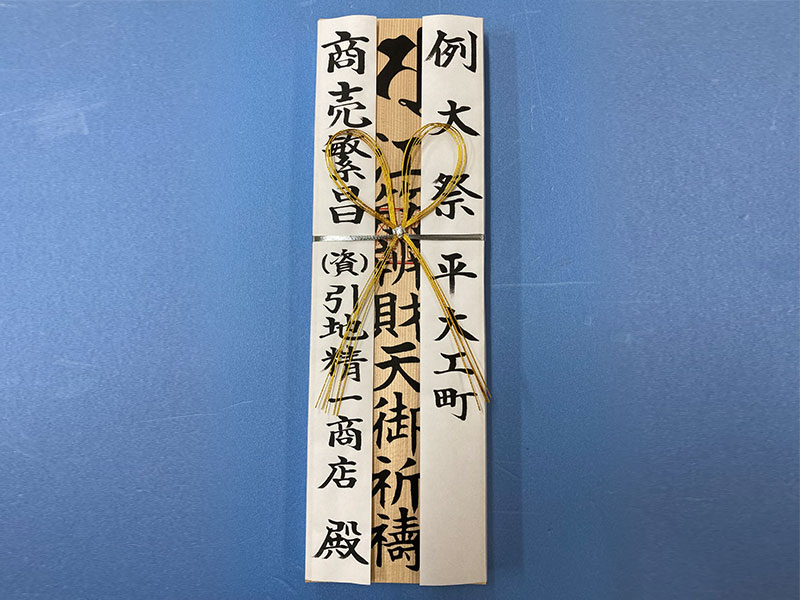 例大祭 平大工町
江 財天御祈禱
商売繁昌 (資)引地精一商店 殿